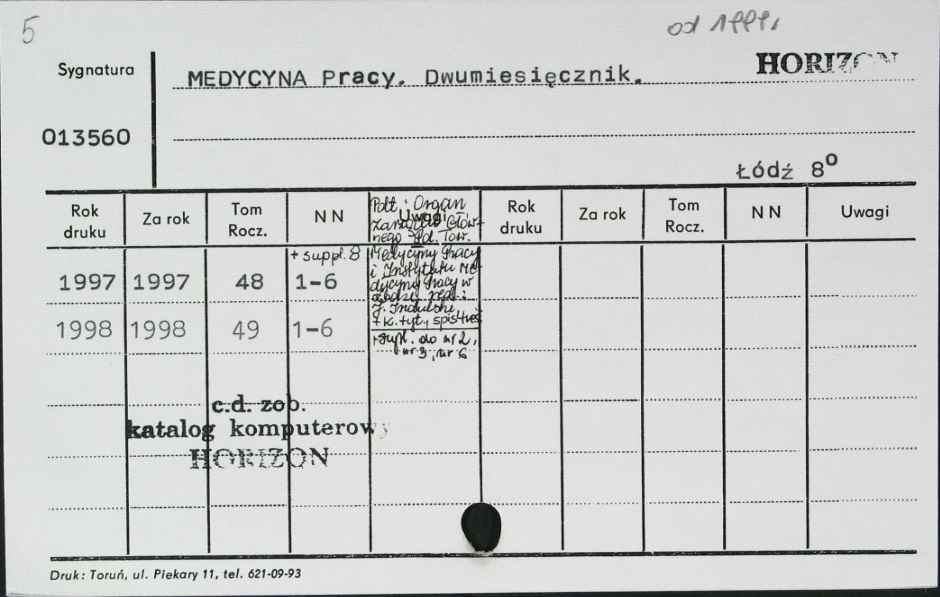 5
od 1999r.
Sygnatura
MEDYCYNA Pracy. Dwumiesięcznik.
HORIZON
013560
Łódź 8o
Rok druku
Za rok
Tom Rocz.
N N
Uwagi
Rok druku
Za rok
Tom Rocz.
N N
Uwagi
Organ
Zarządu Głów-
nego Pol. Tow.
Medycyny Pracy
i Instytutu Me-
dycyny Pracy w
Łodzi, red.:
J. Indulski
+ k. tyt., spis treś
+ supl. do nr 2,
nr 3, nr 6
+ suppl. 8
1997 1997 48 1-6
1998 1998 49 1-6
c.d. zob.
katalog komputerowy
HORIZON
Druk: Toruń, ul. Piekary 11, tel. 621-09-93